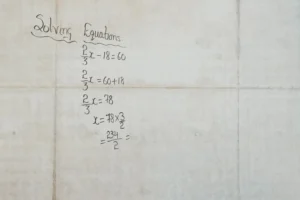 Solving Equations
2/3x - 18 = 60
2/3x = 60 + 18
2/3x = 78
x = 78 × 3/2
= 234/2 =